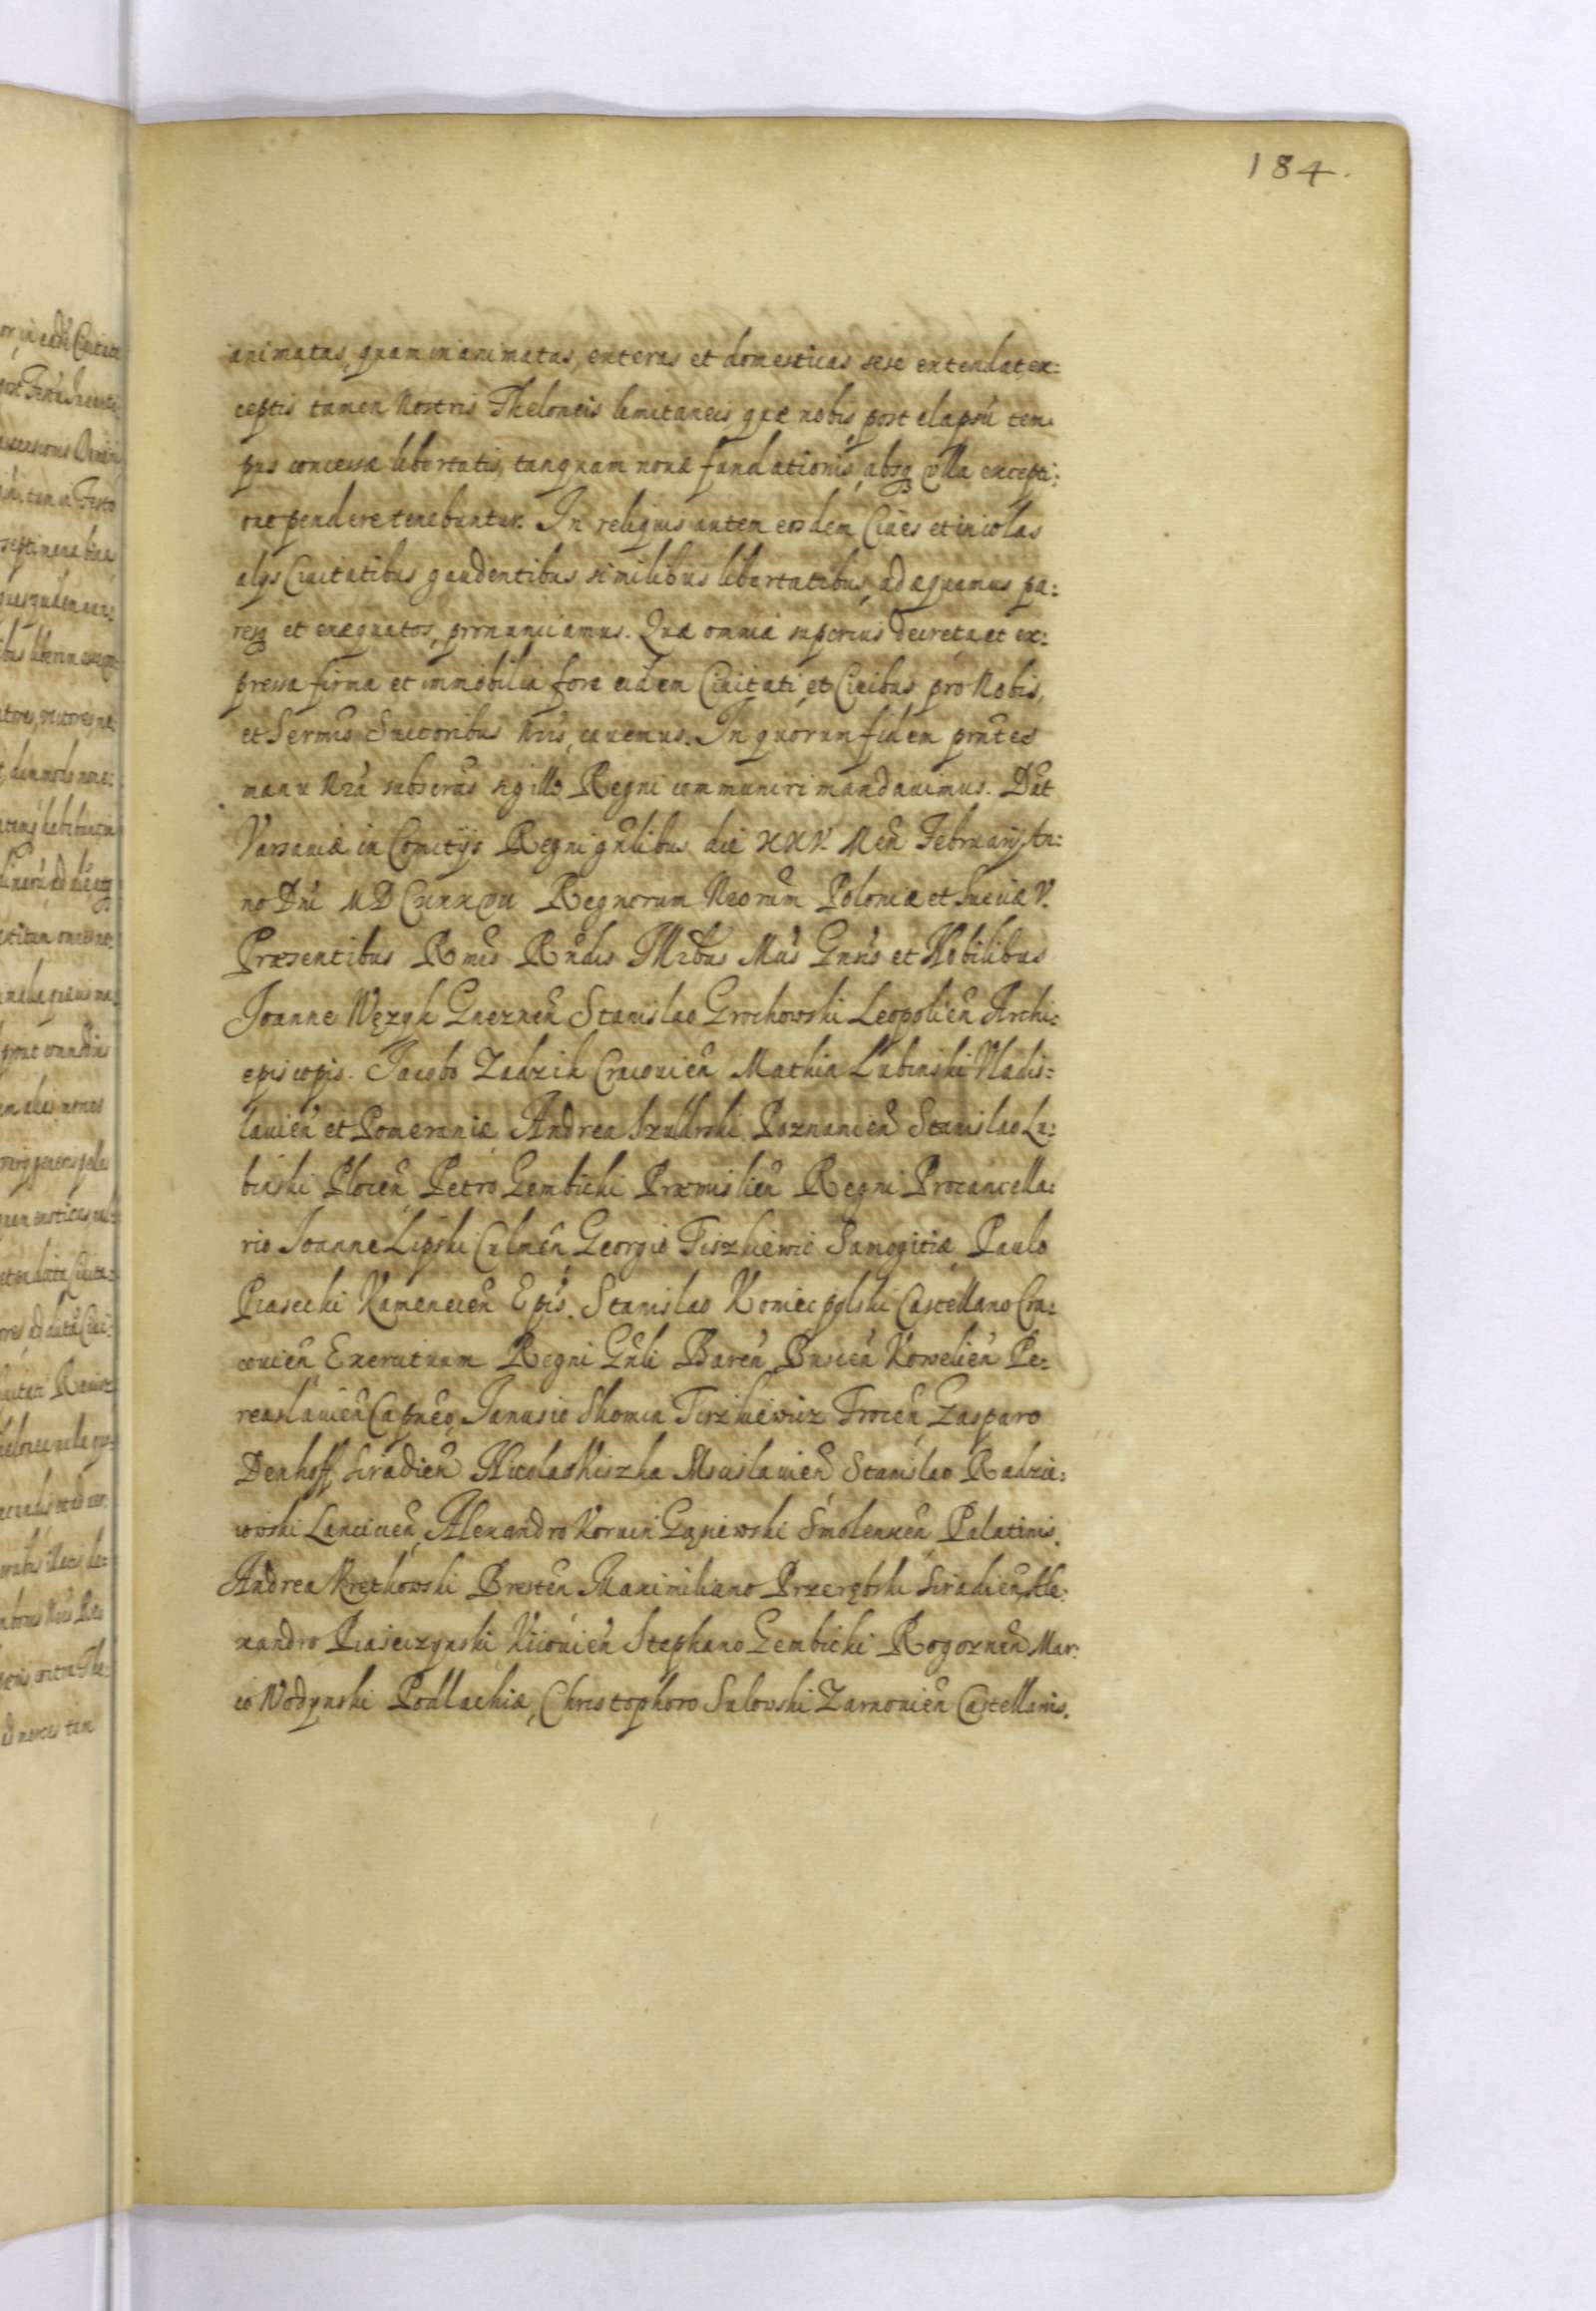 184.
animatas, quam inanimatas, exteras et domesticas sese extendat, ex:
ceptis tamen Nostris Theloneis limitaneis quæ nobis post elapsũ tem:
pus concessæ libertatis, tanquam nouæ fundationis, absq vlla excepti:
one pendere tenebuntur. In reliquis autem eosdem Ciues et incolas
alijs Ciuitatibus gaudentibus similibus libertatibus, adæquamus pa:
resq et exæquatos, pronunciamus. Quæ omnia superius decreta et ex:
pressa firma et immobilia fore eidem Ciuitati, et Ciuibus pro Nobis,
et Sermis Suctoribus Nris, cauemus. In quorum fidem pñtes
manu Nrã subscrãs sigillo Regni communiri mandauimus. Dat
Varsauiæ in Comitijs Regni gñlibus die XXV. Men Februarij An:
no Dni Regnorum Nrorum Poloniæ et Sueciæ V.
Præsentibus Rmis Rndis Illrbus Mcis Gnsis et Nobilibus
Joanne Węzyk Gneznen̄ Stanislao Grochowski Leopolien̄ Archi:
episcopis. Jacobo Zadzik Cracouien̄ Mathia Łubinski Vladis:
lauien̄ et Pomeraniæ Andrea Szuldrski Poznanien̄ Stanislao Lu:
binski Plocen̄ Petro Gembicki Præmislien̄ Regni Procancella:
rio Joanne Lipski Culmen̄, Georgio Tiszkiewic Samogitiæ Paulo
Piasecki Kamenecen̄ Epis. Stanislao Koniecpolski Castellano Cra:
couien̄ Exercituum Regni Gn̄li Baren̄ Buscen̄ Kowelien̄ Pe:
reaslauien̄ Capneo, Janusio Skomin Tiszkiewicz Trocen̄ Gasparo
Denhoff, Siradien̄ Nicolao Kiszka Mscislauien̄ Stanislao Radzie:
iowski Lancicien̄, Alexandro Koruin Gąsiewski Smolenscen̄ Palatinis.
Andrea Kretkowski Bresten̄ Maximiliano Przerębski Siradien̄, Ale:
xandro Piaseczynski Kiiouien̄ Stephano Gembicki Rogoznen̄ Mar:
co Wodynski Podlachiæ, Christophoro Sulowski Zarnouien̄ Castellanis.